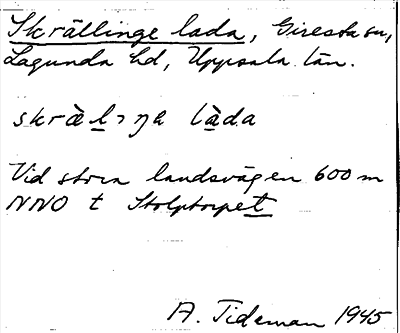 Skrällinge lada, Giresta sn,
Lagunda hd, Uppsala län.
skræ̀lıŋe làda
Vid stora landsvägen 600 m
NNO t Stolptorpet
A. Tideman 1945